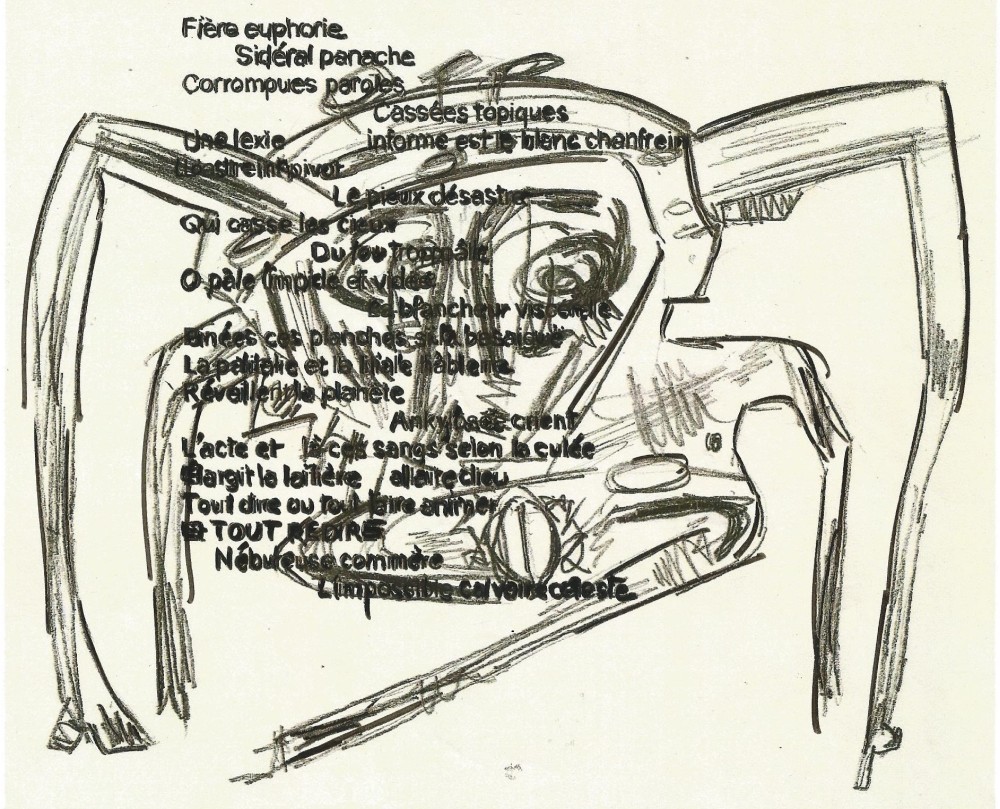 Fière euphorie
Sidéral panache
Corrompues paroles
Cassées topiques
Une lexie informe est le blanc chanfrein
pivot
Le pieux désastre
Qui casse les cieux
Du fou trop pâle
O pâle limpide et vides
La blancheur viscérale
ces planches
La et la
Réveillent la planète
crient
L'acte et là ces sangs selon la culée
Élargit la laitière allaite dieu
Tout dire ou tout faire animer
ET TOUT REDIRE
Nébuleuse commère
L'impossible calvaire céleste